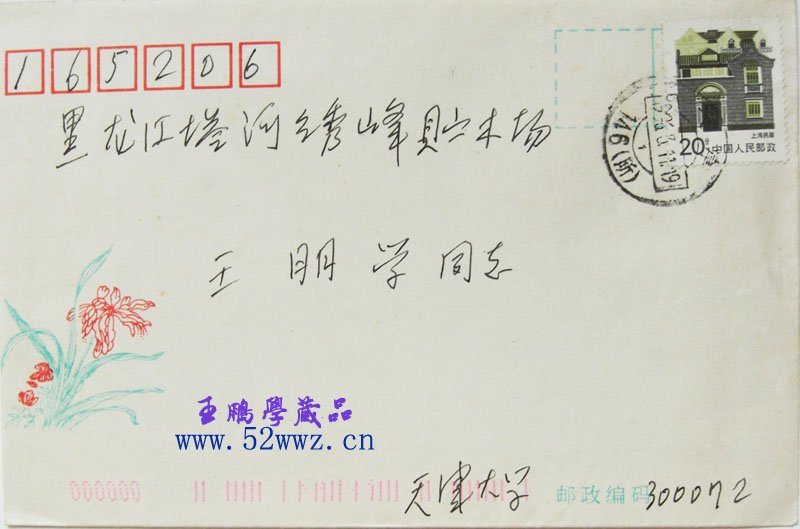 165206
黑龙江塔河绣峰贮木场
上海民居
20分 中国人民邮政
146(所)
王朋学同志
王鹏學藏品
www.52wwz.cn
000000
天津大学 邮政编码 300072